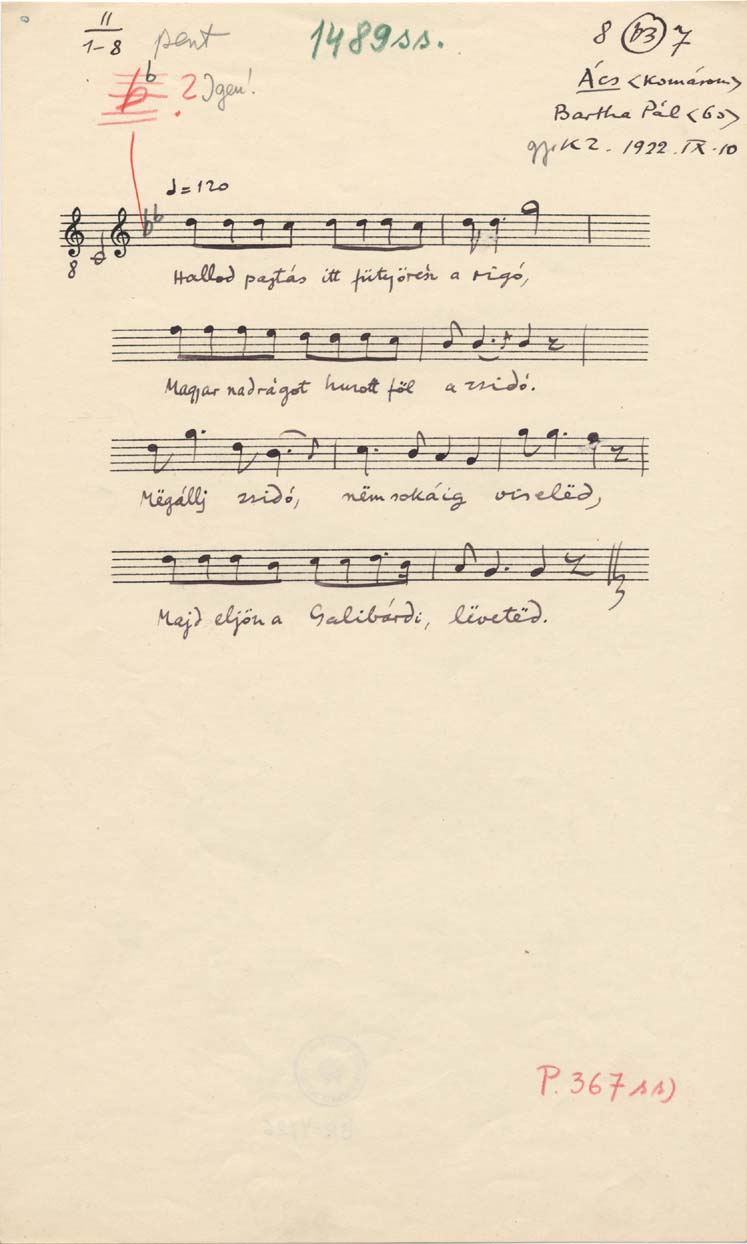 II
1-8 pent 1489ss. 8 b3 7
b ? Igen! Ács <Komárom>
Bartha Pál <60>
gy. KZ. 1922. IX. 10
♩=120
8
Hallod pajtás itt fütyörész a rigó,
Magyar nadrágot huzott föl a zsidó.
Mëgállj zsidó, nëm sokáig viselëd,
Majd eljön a Galibárdi, lëvetëd.
P. 367 ss)